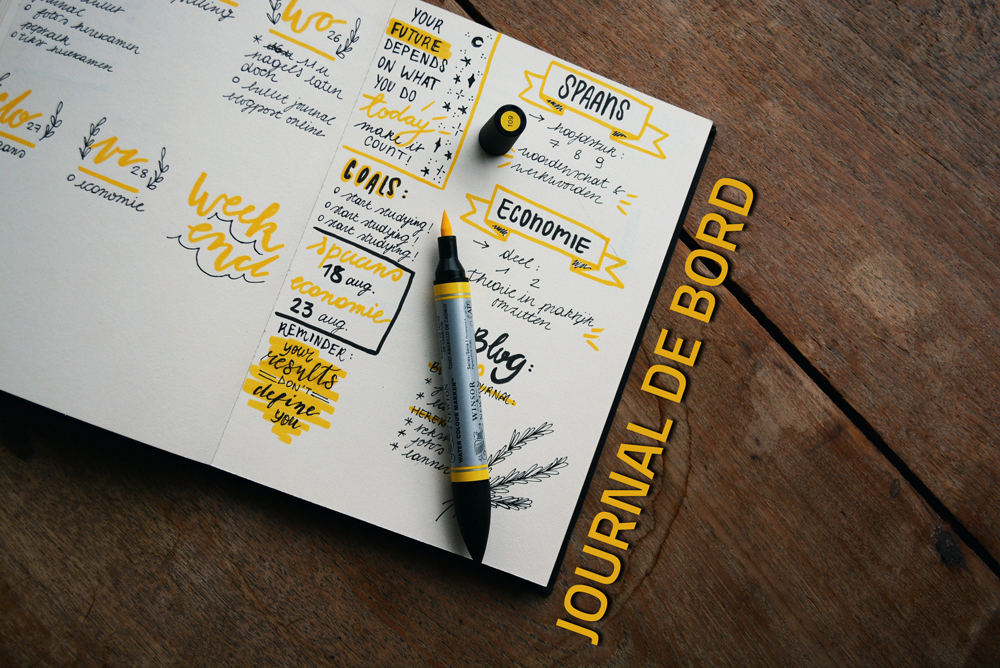 journal
foto's herexamen
wo 26
* uu
nagels laten
doen
o bullet journal
blogpost online
do 27
vr 28
o economie
week
end
YOUR
FUTURE
DEPENDS
ON WHAT
YOU DO
today
make it
COUNT!
GOALS:
o start studying!
o start studying!
o start studying!
spaans
18 aug.
economie
23 aug.
REMINDER:
your
results
DON'T
define
you
SPAANS
→ hoofdstuk:
7 8 9
woordenschat &
werkwoorden
ECONOMIE
→ deel:
1 2
theorie in praktijk
omzetten
Blog:
109
WATER COLOUR MARKER
WINSOR
JOURNAL DE BORD